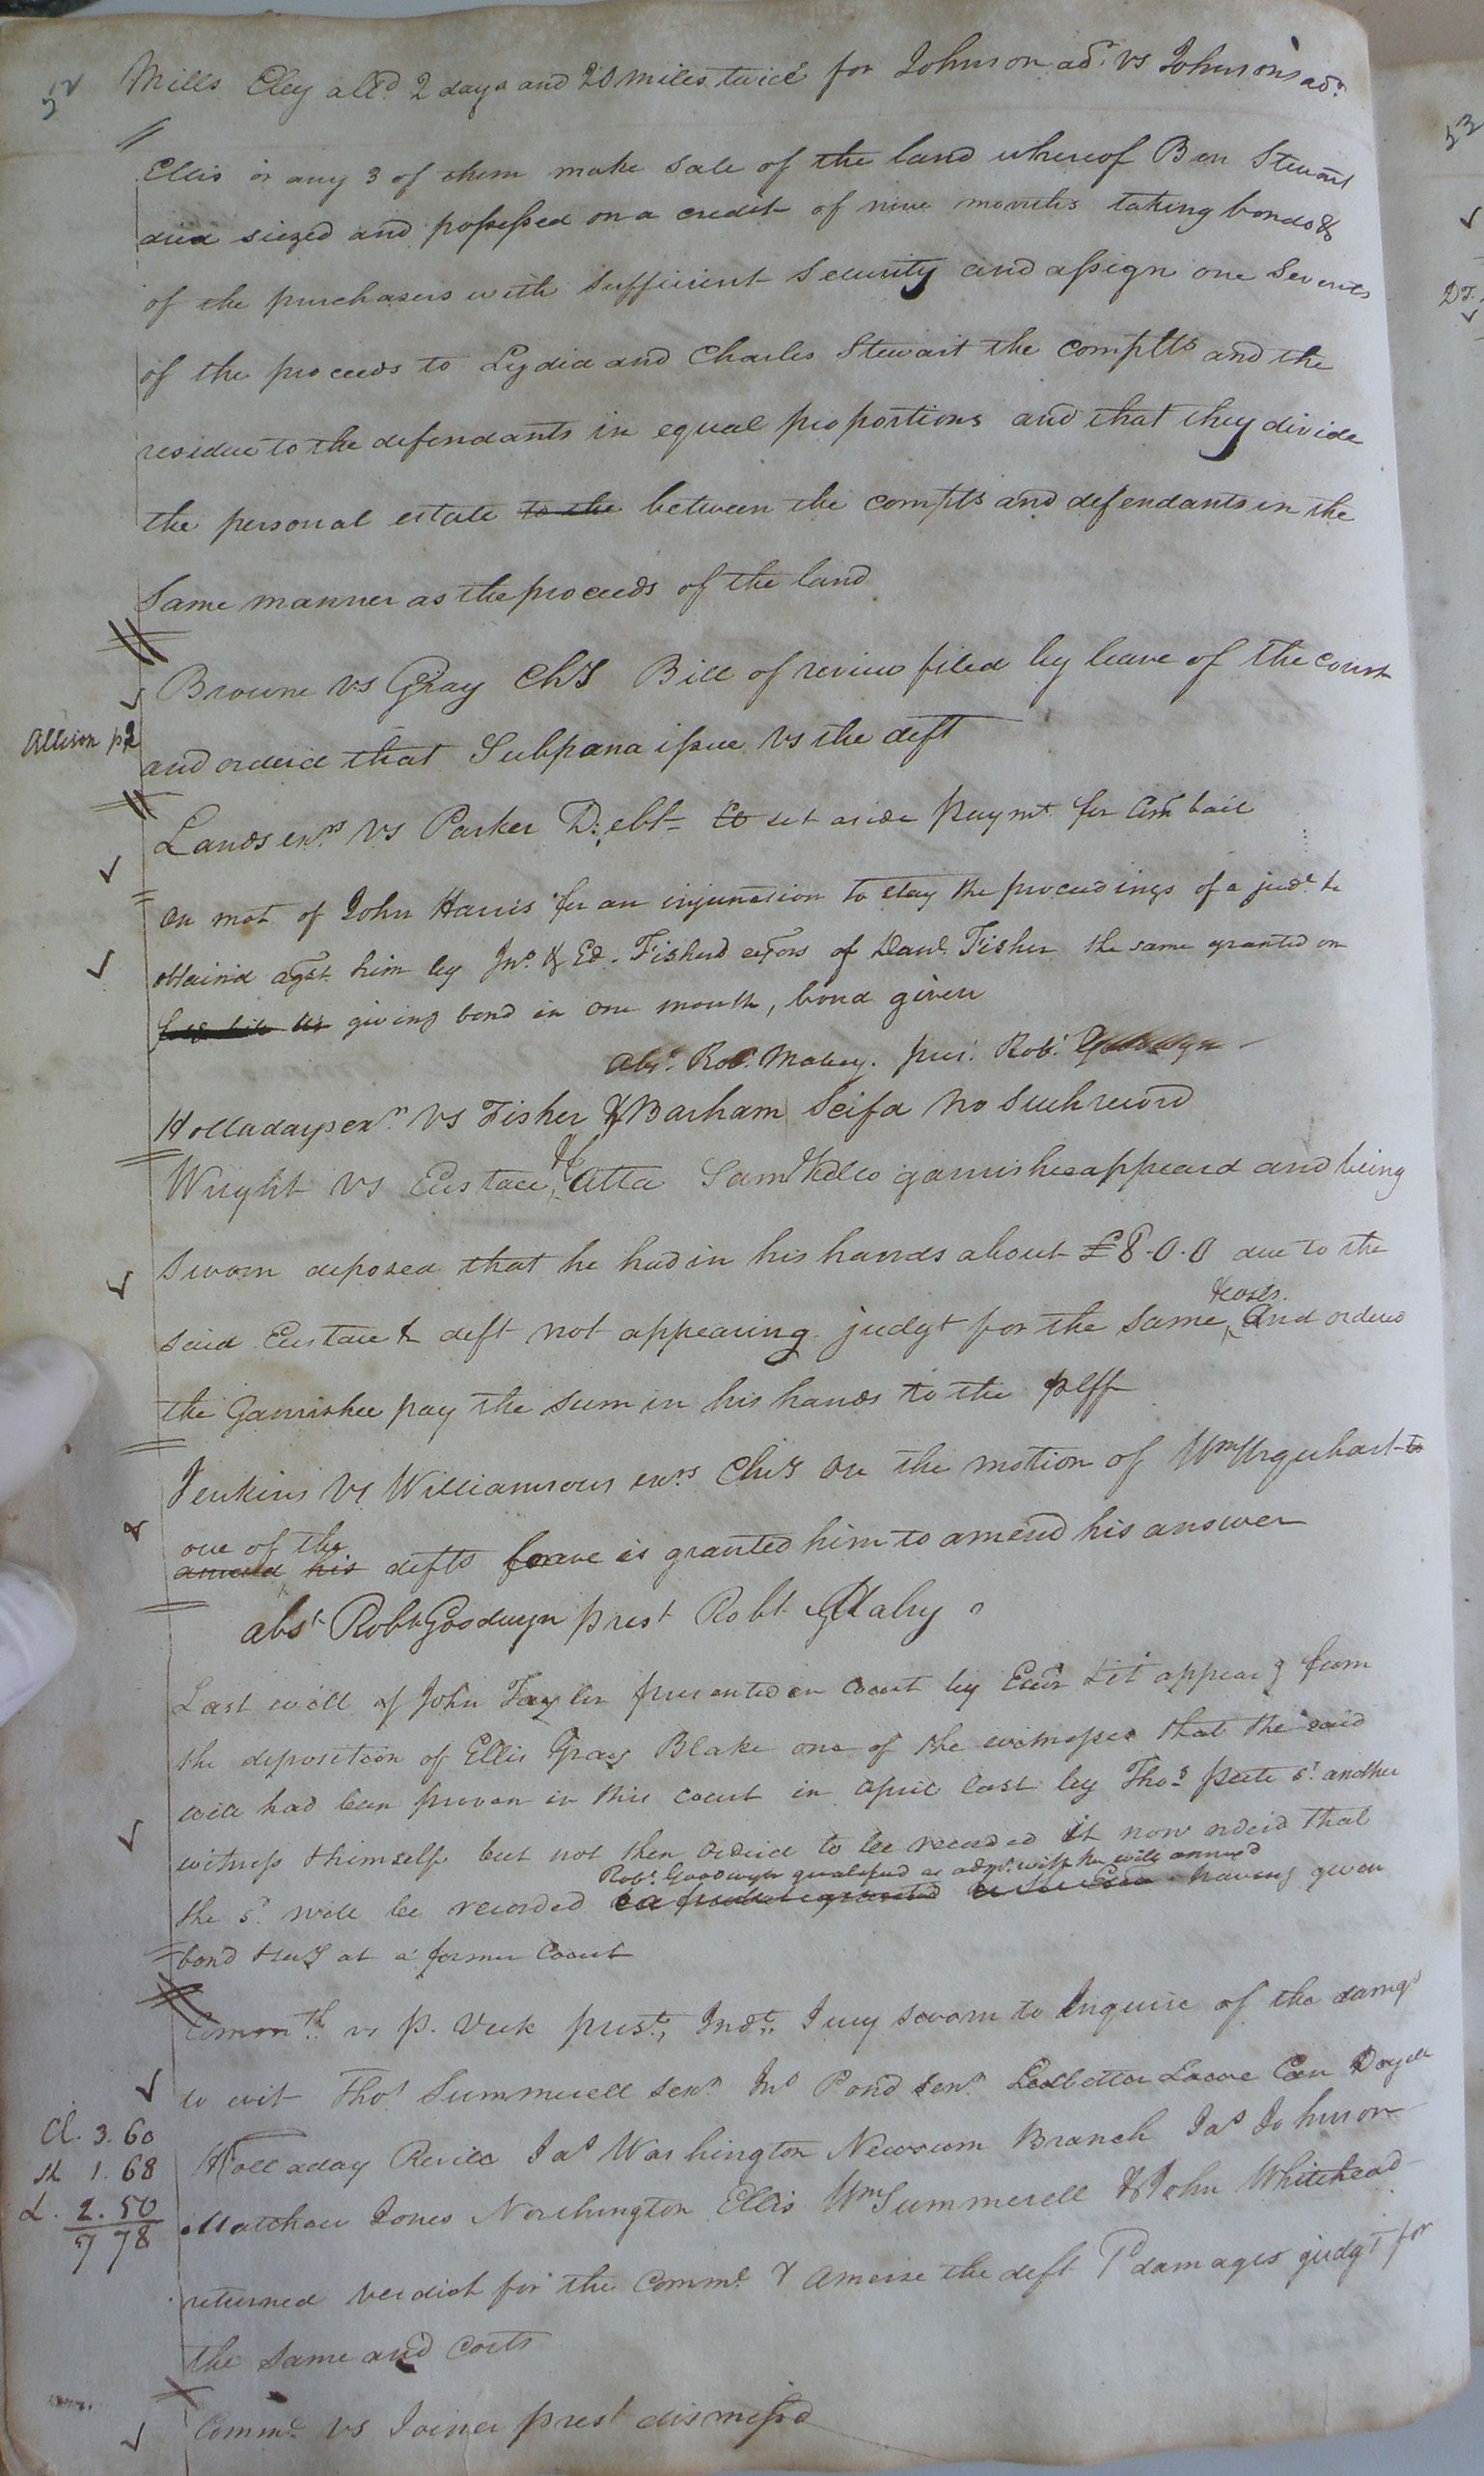 52
Mills Eley attd. 2 days and 20 miles twice for Johnson adr. vs Johnsons adr.
Ellis or any 3 of them make sale of the land whereof Ben Stewart
died siezed and possessed on a credit of nine months taking bonds &
of the purchasers with sufficient Security and assign one Seventh
of the proceeds to Lydia and Charles Stewart the complts and the
residue to the defendants in equal proportions and that they divide
the personal estate to the between the complts and defendants in the
Same manner as the proceeds of the land
Browne vs Gray ChS Bill of review filed by leave of the court
Allison
and orderd that Subpana issue vs the deft
Lands exrs vs Parker Debt Co set aside paymt for Com bail
On mot of John Harris for an injunction to stay the proceedings of a judt. he
obtaind agst him by Jno. & Ed. Fishers exors of Danl. Fisher the same granted on
his giving bond in one month, bond given
abst. Rob. Mabry. pres. Robt. Goodwyn
Holladays exr. vs Fisher & Barham Scifa No Such record
Wright vs Eustace Atta Saml Kello garnishee appeard and being
Sworn deposed that he had in his hands about £8.0.0 due to the
said Eustace & deft not appearing judgt for the Same & costs. and orderd
the Garnishee pay the Sum in his hands to the plff
Jenkins vs Williamsons exrs ChS On the motion of Wm Urquhart to
one of the
amend his defts leave is granted him to amend his answer
abst Robt Goodwyn prest Robt Mabry
Last will of John Taylor presented in Court by Exor & it appearg from
the deposition of Ellis Gray Blake one of the witnesses that the said
will had been proven in this court in April last by Thos. Peete sr. another
witness & himself but not then orderd to be recorded it now ordeid that
Robt. Goodwyn qualified as admr. with the will annexd
the sd. will be recorded having given
bond & secy at a former Court
Commth. vs P. Vick prest., Indt., Jury sworn to Inquire of the damgs
to wit Thos Summerell senr Jno Pond senr. Ledbetter Lowe Carr Doyell
Cl. 3.60
Holladay Revill Jas Washington Newsom Branch Jas Johnson
Sh 1.68
L. 2.50
Matthew Jones Northington Ellis Wm Summerell & John Whitehead
7 78
returned verdict for the Comme. & Amerse the deft 1d damages judgt for
the Same and Costs
Comme. vs Joiner prest dismissd
53